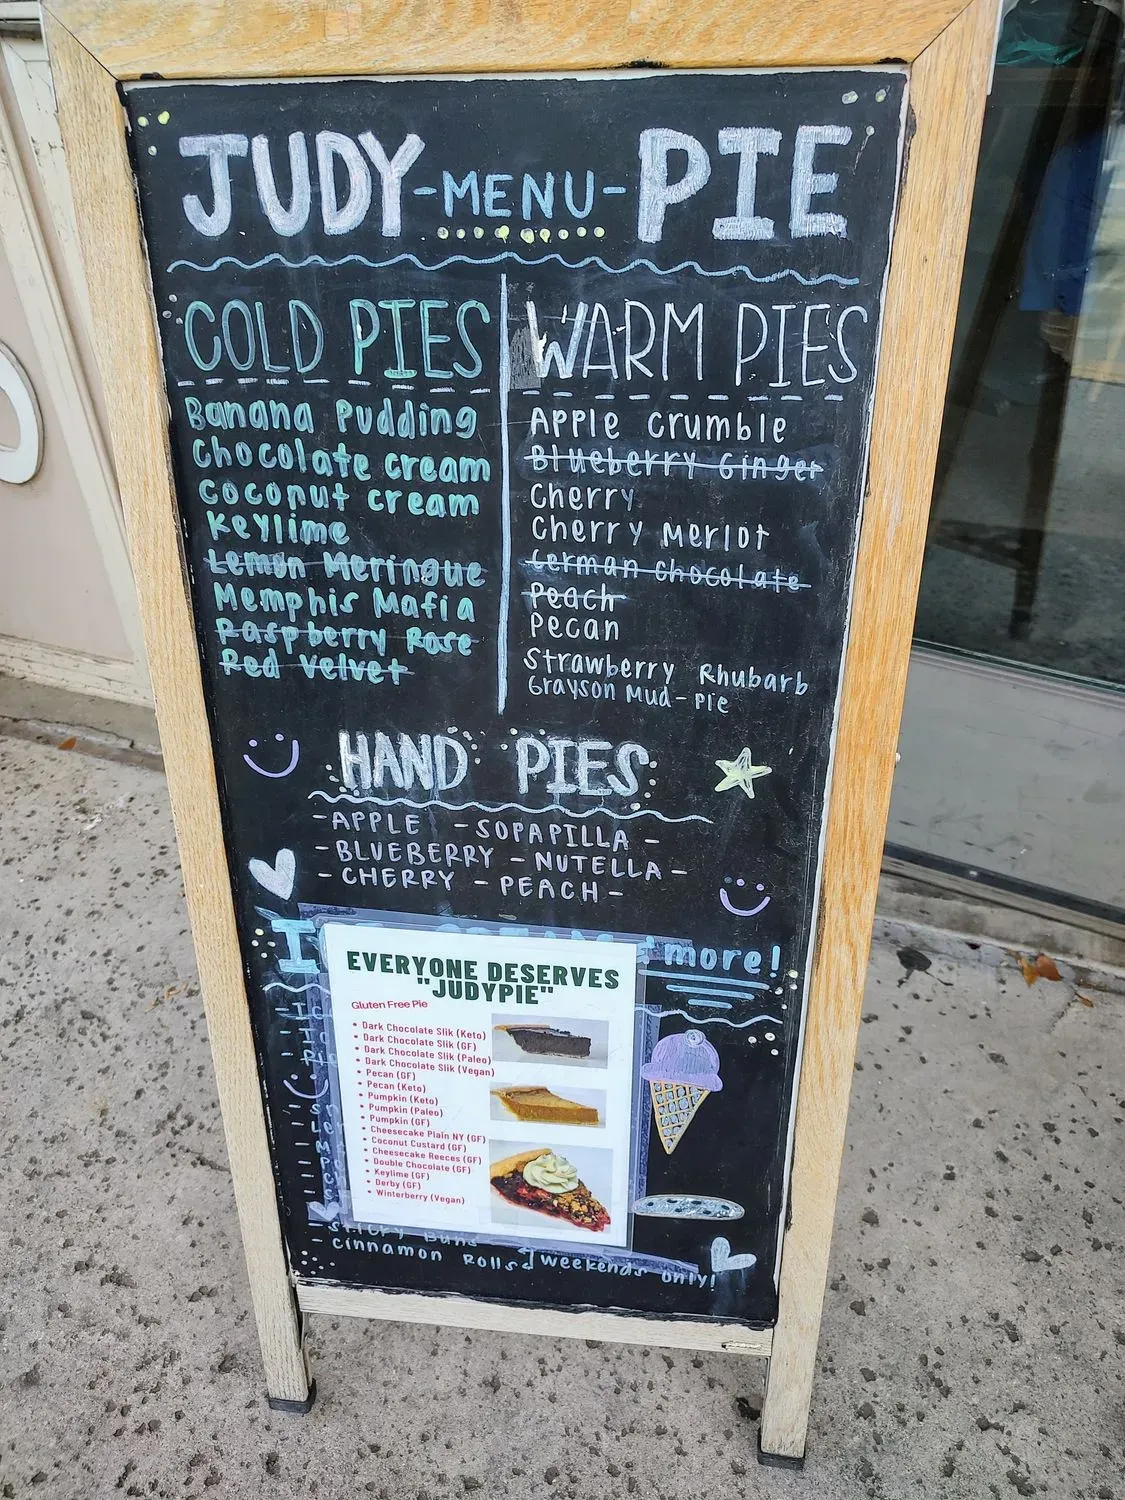 JUDY -MENU- PIE
COLD PIES
Banana Pudding
Chocolate cream
Coconut cream
Keylime
Lemon Meringue
Memphis Mafia
Raspberry Rose
Red Velvet
WARM PIES
Apple Crumble
Blueberry Ginger
Cherry
Cherry Merlot
German Chocolate
Peach
Pecan
Strawberry Rhubarb
Grayson Mud-Pie
HAND PIES
-APPLE -SOPAPILLA -
-BLUEBERRY -NUTELLA-
-CHERRY -PEACH-
more!
EVERYONE DESERVES
"JUDYPIE"
Gluten Free Pie
• Dark Chocolate Slik (Keto)
• Dark Chocolate Slik (GF)
• Dark Chocolate Slik (Paleo)
• Dark Chocolate Slik (Vegan)
• Pecan (GF)
• Pecan (Keto)
• Pumpkin (Keto)
• Pumpkin (Paleo)
• Pumpkin (GF)
• Cheesecake Plain NY (GF)
• Coconut Custard (GF)
• Cheesecake Reeces (GF)
• Double Chocolate (GF)
• Keylime (GF)
• Derby (GF)
• Winterberry (Vegan)
Sticky Buns
Cinnamon Rolls weekends only!